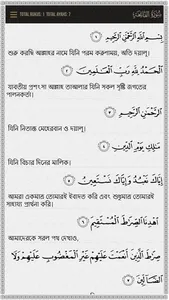 TOTAL RUKUS: 1 TOTAL AYAHS: 7
بِسْمِ اللَّهِ الرَّحْمَٰنِ الرَّحِيمِ ۝١
শুরু করছি আল্লাহর নামে যিনি পরম করুণাময়, অতি দয়ালু।
الْحَمْدُ لِلَّهِ رَبِّ الْعَالَمِينَ ۝٢
যাবতীয় প্রশংসা আল্লাহ তাআলার যিনি সকল সৃষ্টি জগতের
পালনকর্তা।
الرَّحْمَٰنِ الرَّحِيمِ ۝٣
যিনি নিতান্ত মেহেরবান ও দয়ালু।
مَالِكِ يَوْمِ الدِّينِ ۝٤
যিনি বিচার দিনের মালিক।
إِيَّاكَ نَعْبُدُ وَإِيَّاكَ نَسْتَعِينُ ۝٥
আমরা একমাত্র তোমারই ইবাদত করি এবং শুধুমাত্র তোমারই
সাহায্য প্রার্থনা করি।
اهْدِنَا الصِّرَاطَ الْمُسْتَقِيمَ ۝٦
আমাদেরকে সরল পথ দেখাও,
صِرَاطَ الَّذِينَ أَنْعَمْتَ عَلَيْهِمْ غَيْرِ الْمَغْضُوبِ عَلَيْهِمْ وَلَا
الضَّالِّينَ ۝٧